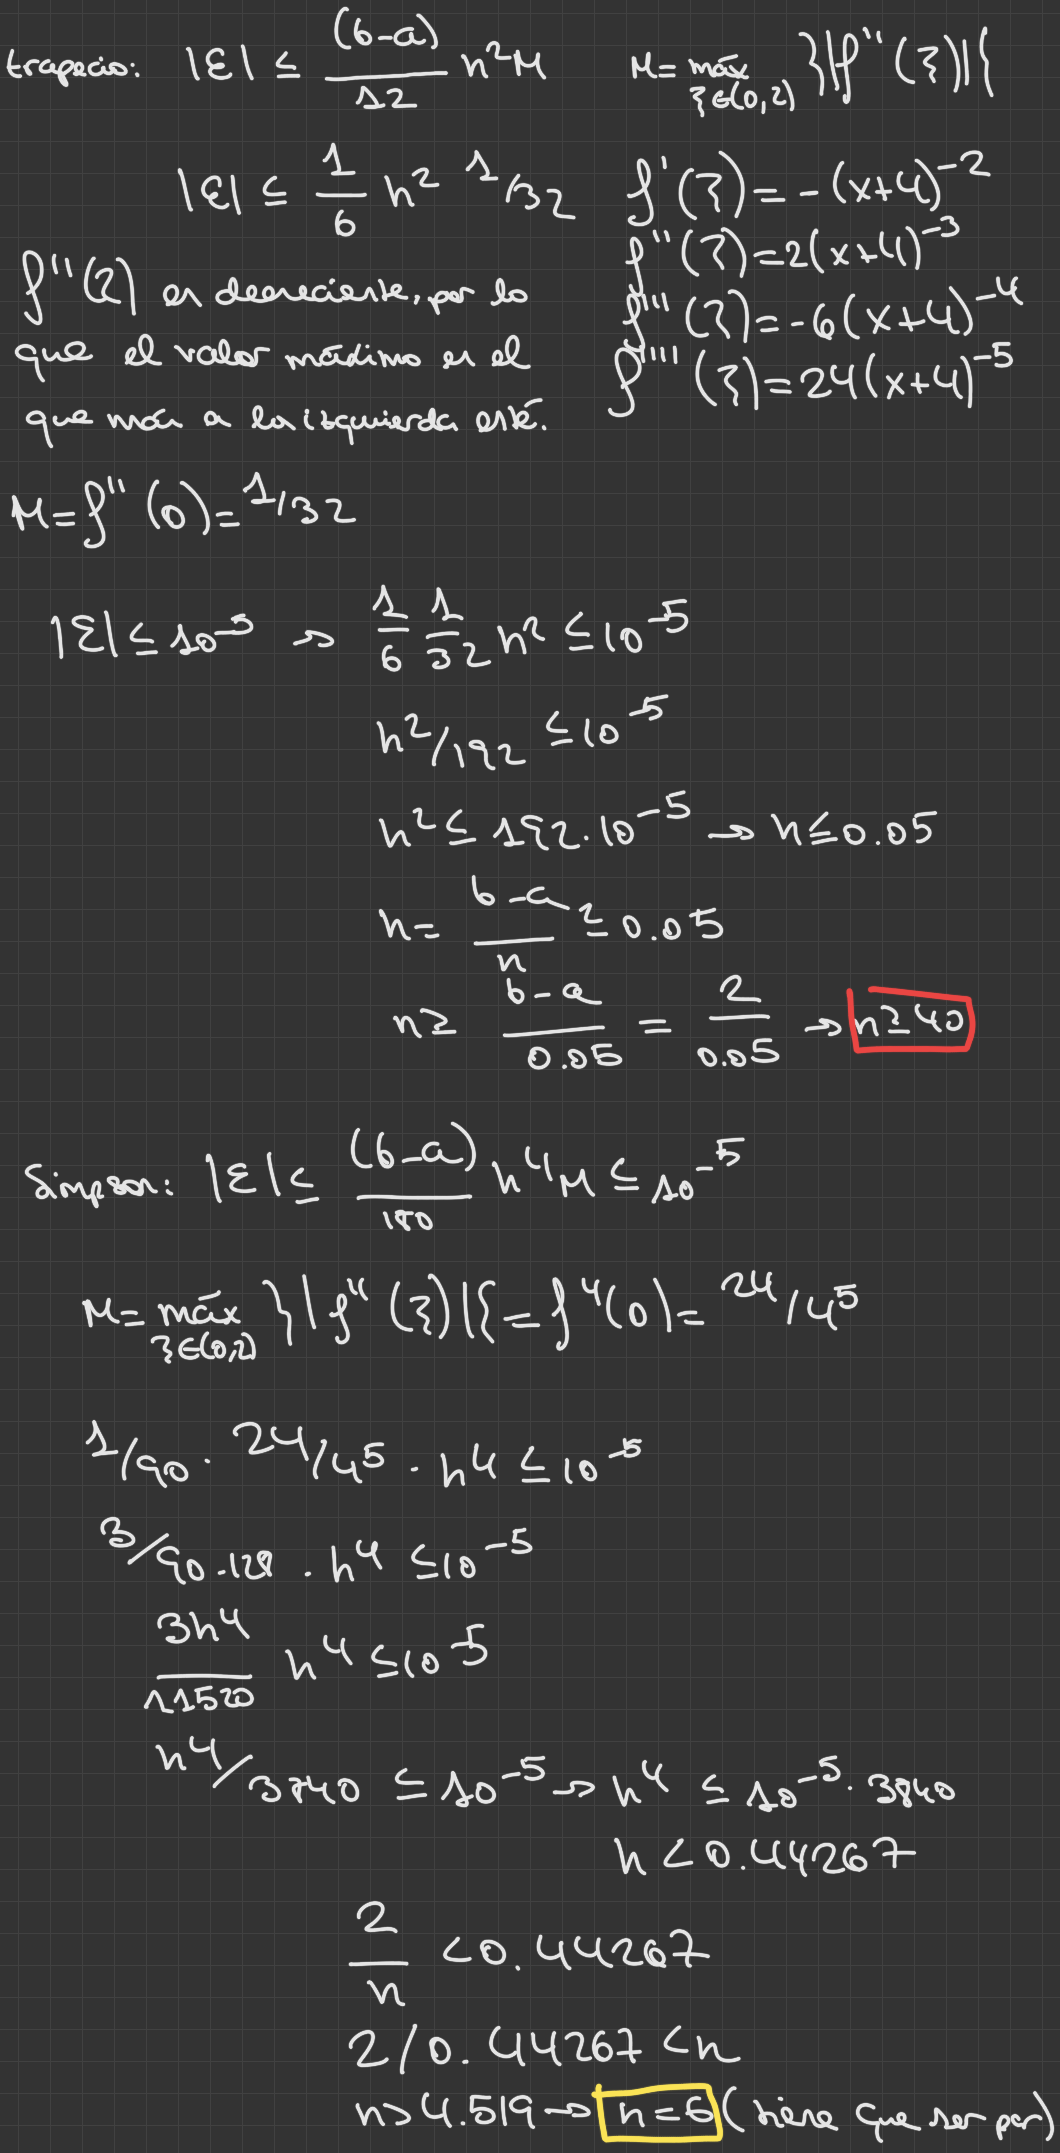 trapecio: |ε| ≤ (b-a)/12 h²M    M = máx ξ∈(0,2) }|f''(ξ)|{
|ε| ≤ 1/6 h² 1/32    f'(ξ) = -(x+4)^-2
f''(ξ) = 2(x+4)^-3
f''(ξ) es decreciente, por lo    f'''(ξ) = -6(x+4)^-4
que el valor máximo es el    f''''(ξ) = 24(x+4)^-5
que más a la izquierda esté.
M = f''(0) = 1/32
|ε| ≤ 10^-5 → 1/6 1/32 h² ≤ 10^-5
h²/192 ≤ 10^-5
h² ≤ 192·10^-5 → h ≤ 0.05
h = b-a/n ≤ 0.05
n ≥ b-a/0.05 = 2/0.05 → n ≥ 40
Simpson: |ε| ≤ (b-a)/180 h⁴M ≤ 10^-5
M = máx ξ∈(0,2) }|f⁴(ξ)|{ = f⁴(0) = 24/4⁵
1/90 · 24/4⁵ · h⁴ ≤ 10^-5
3/90·128 · h⁴ ≤ 10^-5
3h⁴/11520 h⁴ ≤ 10^-5
h⁴/3840 ≤ 10^-5 → h⁴ ≤ 10^-5 · 3840
h < 0.44267
2/n < 0.44267
2/0.44267 < n
n > 4.519 → n = 6 (tiene que ser par)